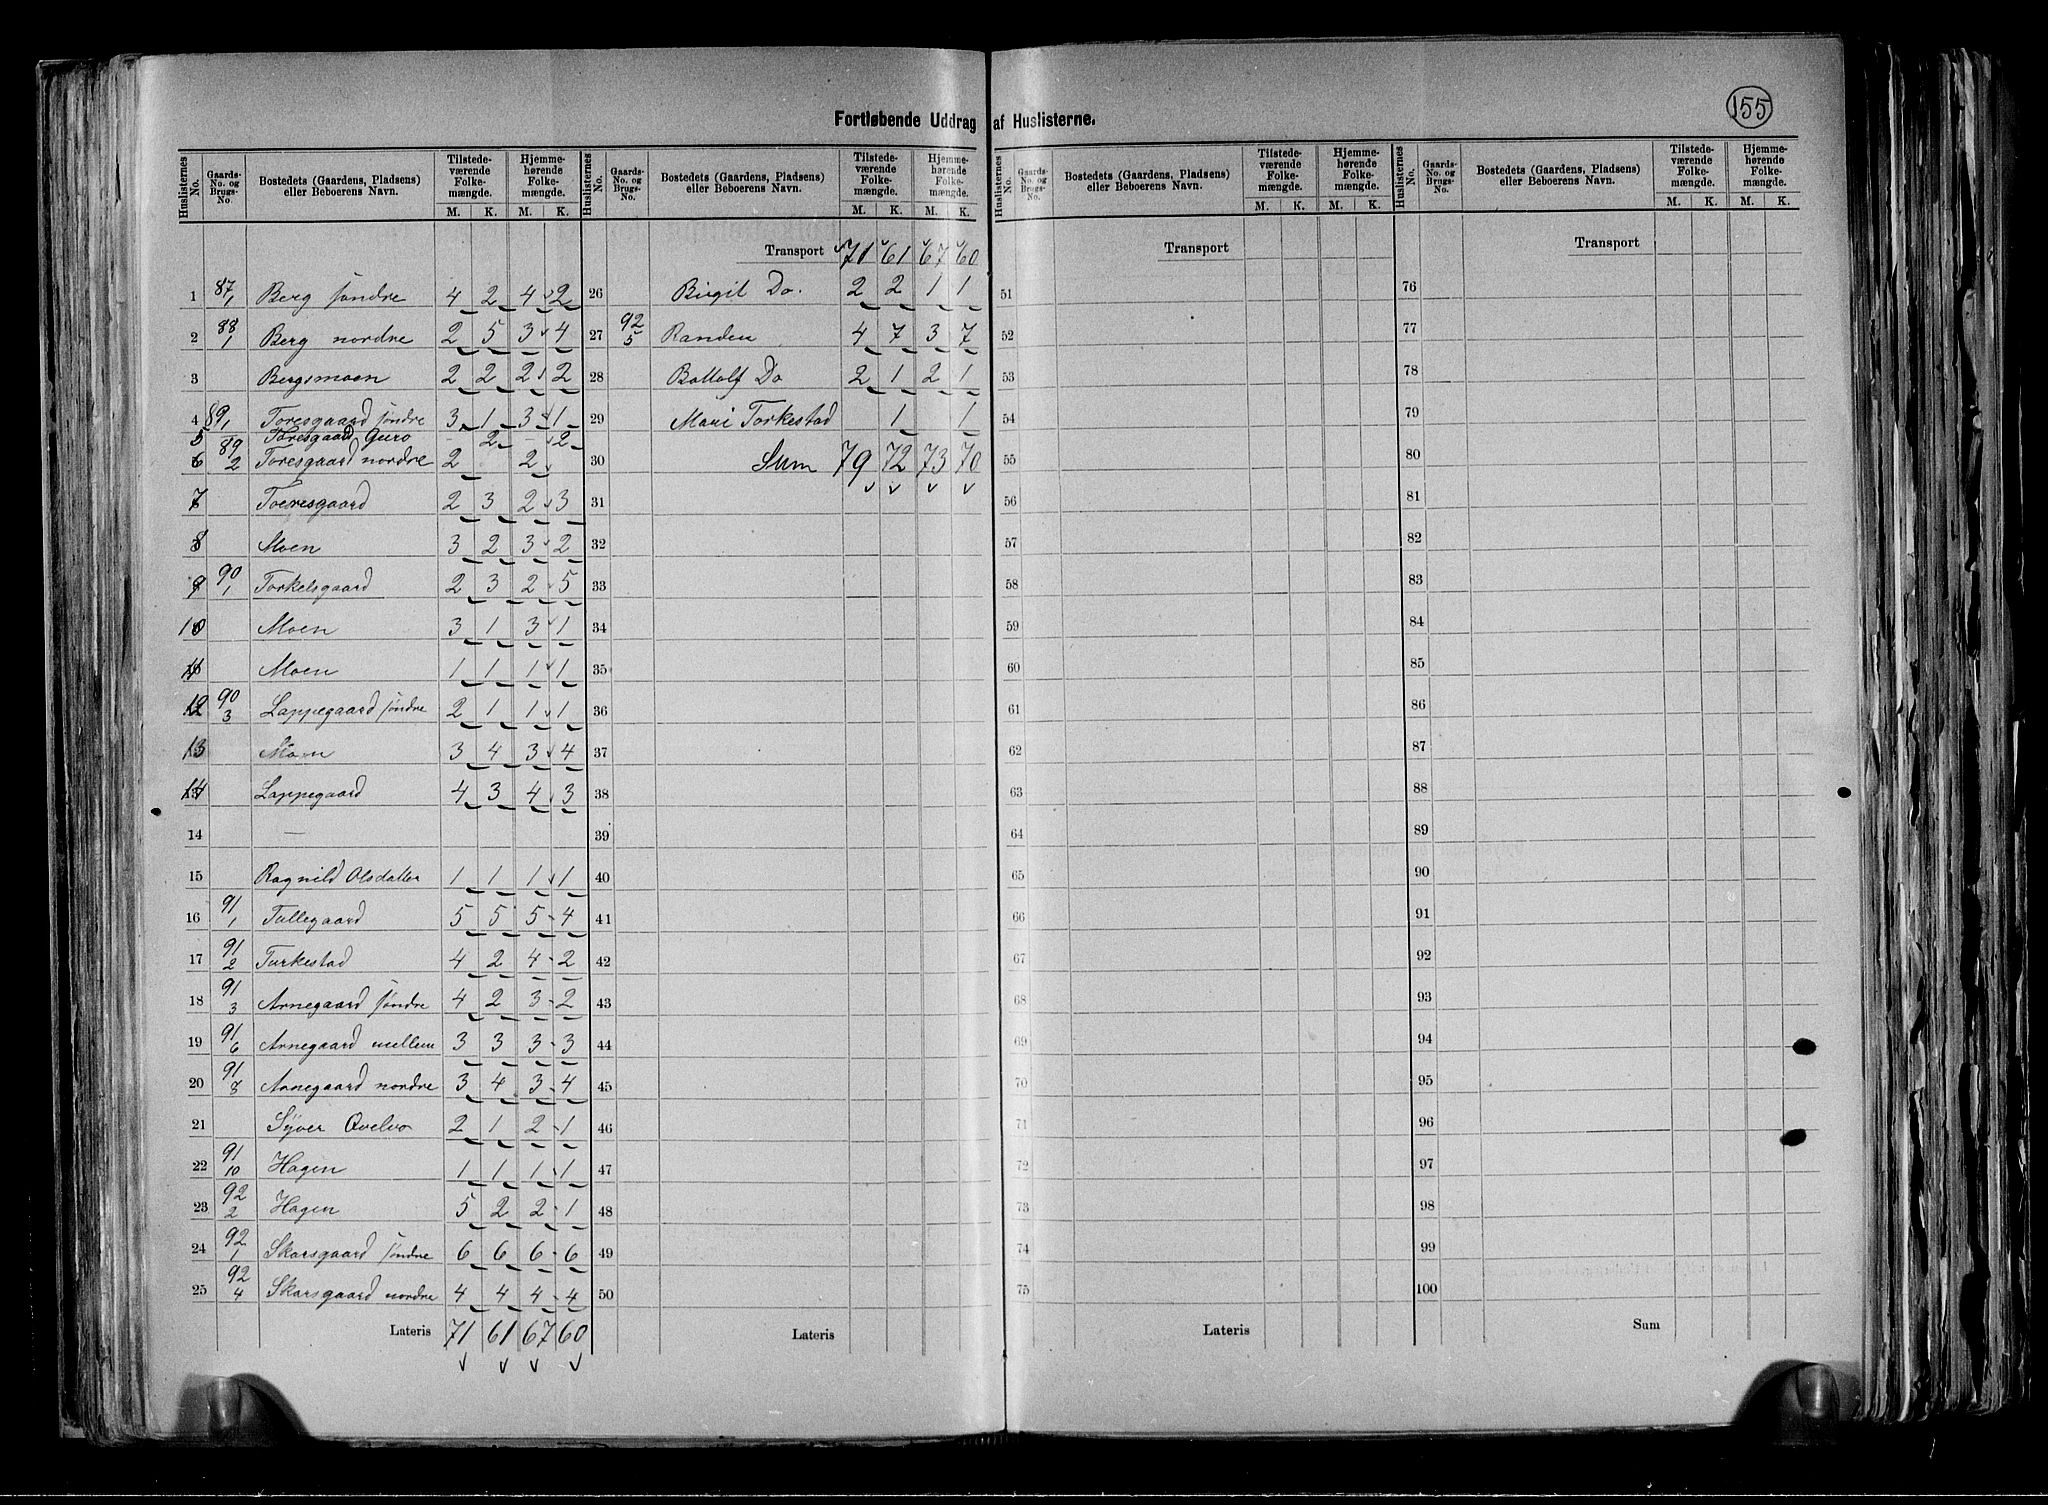 155
Fortløbende Uddrag af Huslisterne.
Huslisternes No. Gaards-No. og Brugs-No. Bostedets (Gaardens, Pladsens) eller Beboerens Navn. Tilstedeværende Folkemængde. M. K. Hjemmehørende Folkemængde. M. K.
1 87/1 Berg søndre 4 2 4 2
2 88/1 Berg nordre 2 5 3 4
3 Bergsmoen 2 2 2 2
4 89/1 Toresgaard søndre 3 1 3 1
5 Toresgaard Guro - 2 - 2
6 89/2 Toresgaard nordre 2 2
7 Toeresgaard 2 3 2 3
8 Moen 3 2 3 2
9 90/1 Torkelsgaard 2 3 2 5
10 Moen 3 1 3 1
11 Moen 1 1 1 1
12 90/3 Lappegaard søndre 2 1 1 1
13 Moen 3 4 3 4
14 Lappegaard 4 3 4 3
14 —
15 Ragnild Olsdatter 1 1 1 1
16 91/1 Tullegaard 5 5 5 4
17 91/2 Turkestad 4 2 4 2
18 91/3 Arnegaard søndre 4 2 3 2
19 91/6 Arnegaard mellem 3 3 3 3
20 91/8 Arnegaard nordre 3 4 3 4
21 Syver Qvelvo 2 1 2 1
22 91/10 Hagen 1 1 1 1
23 92/2 Hagen 5 2 2 1
24 92/1 Skarsgaard søndre 6 6 6 6
25 92/4 Skarsgaard nordre 4 4 4 4
Lateris 71 61 67 60
Huslisternes No. Gaards-No. og Brugs-No. Bostedets (Gaardens, Pladsens) eller Beboerens Navn. Tilstedeværende Folkemængde. M. K. Hjemmehørende Folkemængde. M. K.
Transport 71 61 67 60
26 Birgit Do. 2 2 1 1
27 92/5 Randen 4 7 3 7
28 Bottolf Do 2 1 2 1
29 Mari Torkestad 1 1
30 Sum 79 72 73 70
31
32
33
34
35
36
37
38
39
40
41
42
43
44
45
46
47
48
49
50
Lateris
Huslisternes No. Gaards-No. og Brugs-No. Bostedets (Gaardens, Pladsens) eller Beboerens Navn. Tilstedeværende Folkemængde. M. K. Hjemmehørende Folkemængde. M. K.
Transport
51
52
53
54
55
56
57
58
59
60
61
62
63
64
65
66
67
68
69
70
71
72
73
74
75
Lateris
Huslisternes No. Gaards-No. og Brugs-No. Bostedets (Gaardens, Pladsens) eller Beboerens Navn. Tilstedeværende Folkemængde. M. K. Hjemmehørende Folkemængde. M. K.
Transport
76
77
78
79
80
81
82
83
84
85
86
87
88
89
90
91
92
93
94
95
96
97
98
99
100
Sum